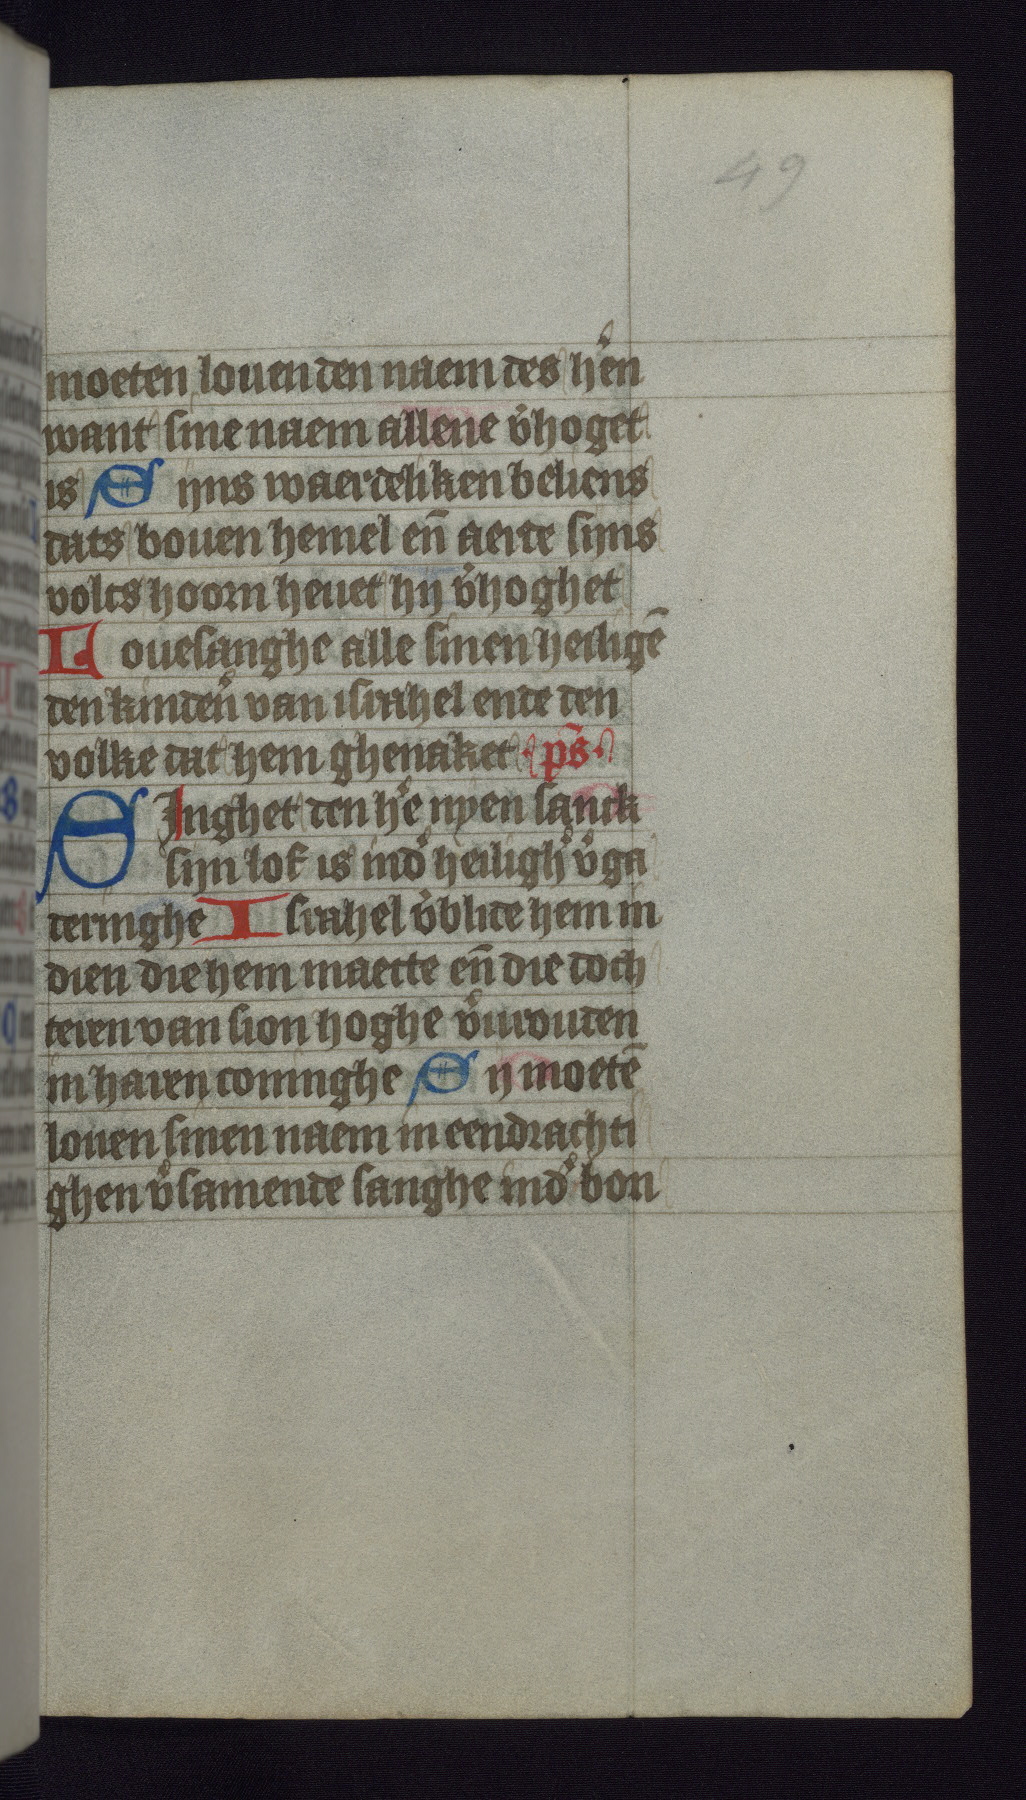 49
moeten louen den naem des he᷒n
want sine naem allene v᷒hoget
is Sijns waerdeliken beliens
dats bouen hemel en̄ aerde sijns
volcs hoorn heuet hij v᷒hoghet
Louesanghe alle sinen heiligē
den kinden᷒ van israhel ende den
volke dat hem ghenaket · ps̄ ·
SInghet den he᷒ nyen sanck
sijn lof is ind᷒ heiligh᷒ v᷒ga
deringhe Israhel v᷒blide hem in
dien die hem maecte en̄ die doch
teren van sion hoghe v᷒urouden
in haren coninghe Sij moetē
louen sinen naem in eendrachti
ghen v᷒samende sanghe ind᷒ bon